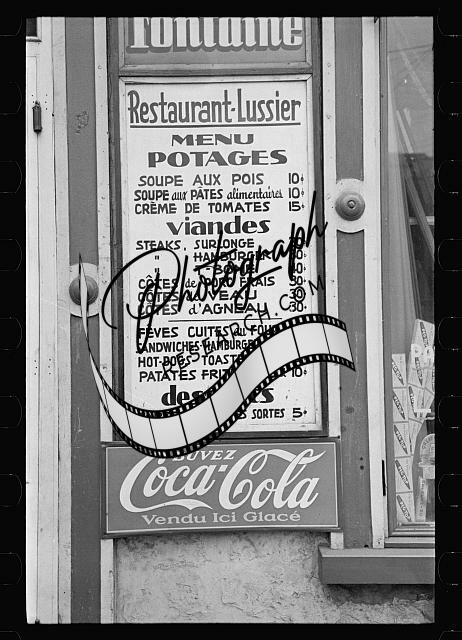 fontaine
Restaurant-Lussier
MENU
POTAGES
SOUPE AUX POIS 10¢
SOUPE aux PÂTES alimentaires 10¢
CRÈME DE TOMATES 15¢
Viandes
STEAKS, SURLONGE
" HAMBURGER
"
CÔTES de PORC FRAIS 30¢
CÔTES VEAU 30¢
CÔTES d'AGNEAU 30¢
FÈVES CUITES au FOUR
SANDWICHES HAMBURGER
HOT-DOGS TOAST
PATATES FRITES 10¢
desserts
SORTES 5¢
BUVEZ
Coca-Cola
Vendu Ici Glacé
Photograph
RESEARCH.COM